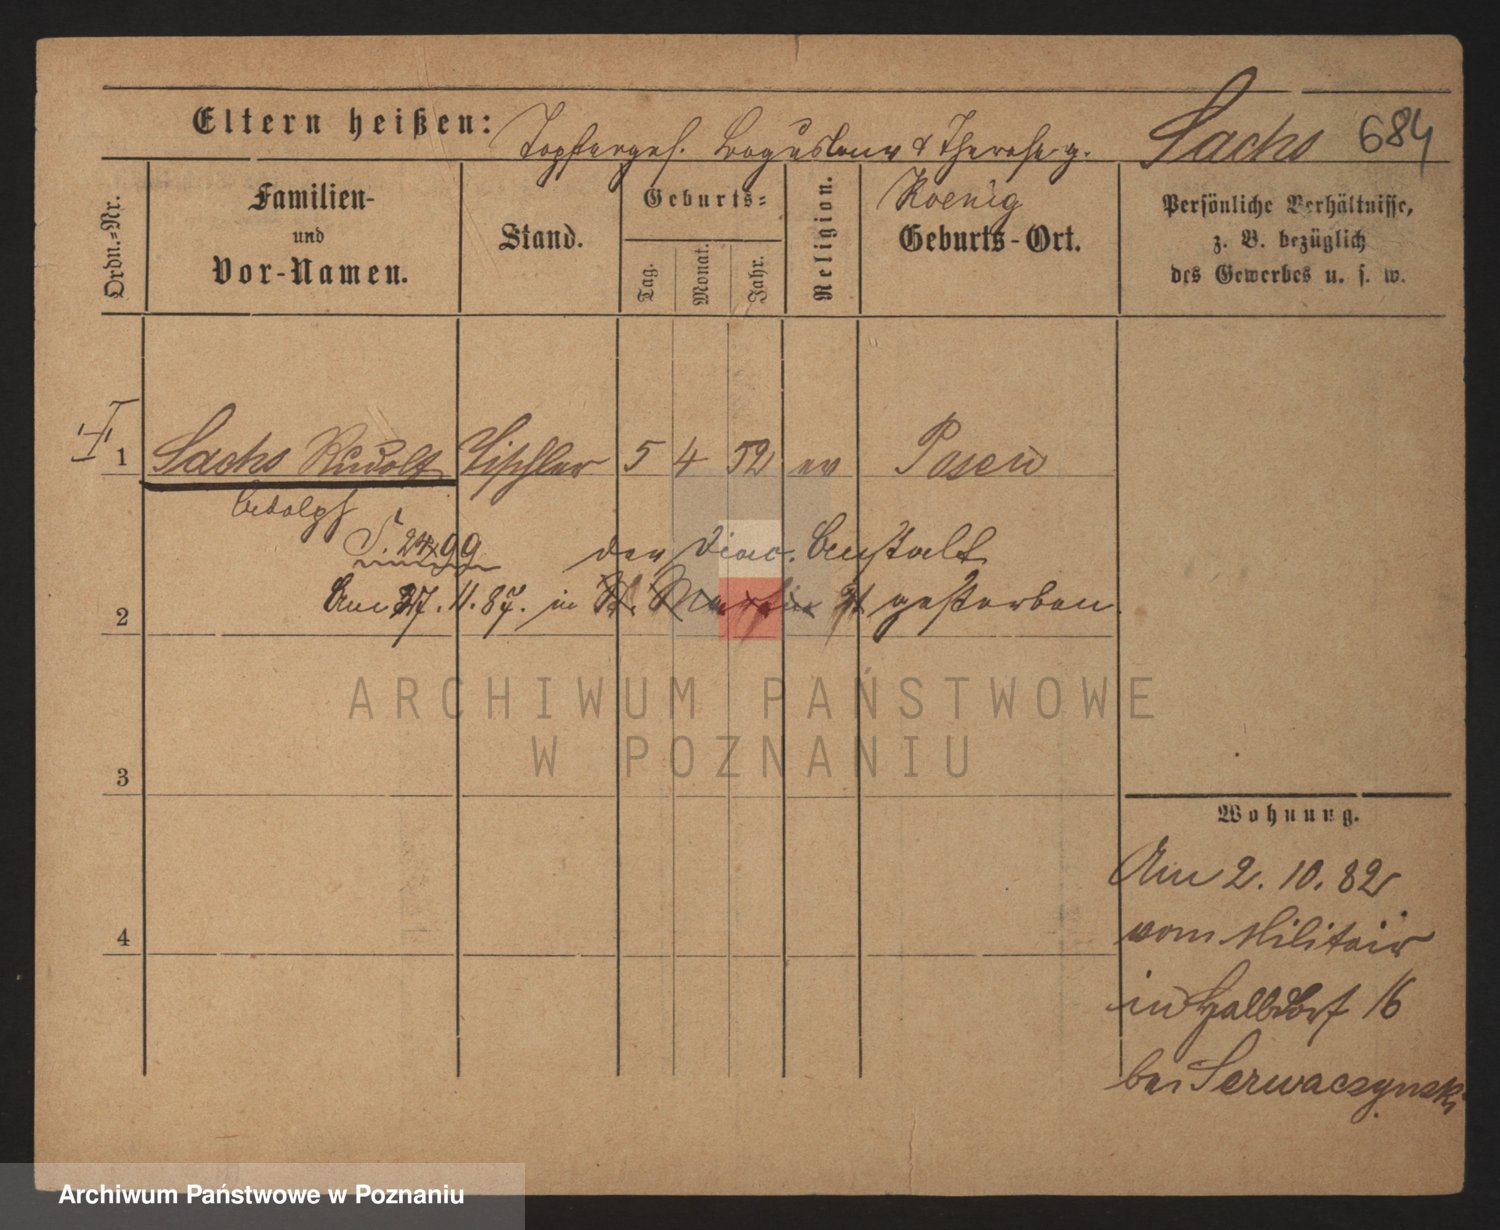 Eltern heißen: Töpferges. Boguslaus & Therese g. Sachs 684
Koenig
Ordn.-Nr.
Familien-
und
Vor-Namen.
Stand.
Geburts-
Tag.
Monat.
Jahr.
Religion.
Geburts-Ort.
Persönliche Verhältnisse,
z. B. bezüglich
des Gewerbes u. s. w.
1 Sachs Rudolf Tischler 5 4 52 ev Posen
Adolph
2499
der Diac. Anstalt
2 Am 27.11.87. in St. Martin gestorben.
ARCHIWUM PAŃSTWOWE
W POZNANIU
3
Wohnung.
Am 2. 10. 82
vom Militair
in Halbdorf 16
bei Serwaczynski
4
Archiwum Państwowe w Poznaniu